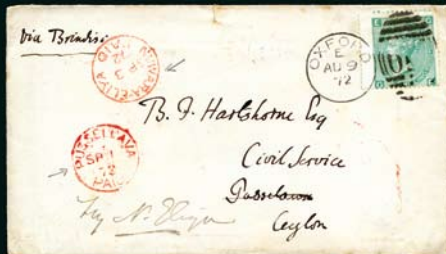 Via Brindisi
NUWARA ELIYA
PAID
SP 3
72
OXFORD
E
AU 9
72
B. F. Hartshorne Esq
Civil Service
Ceylon
PUSSELLAVA
SP 1
72
PAID
Try N. Eliya